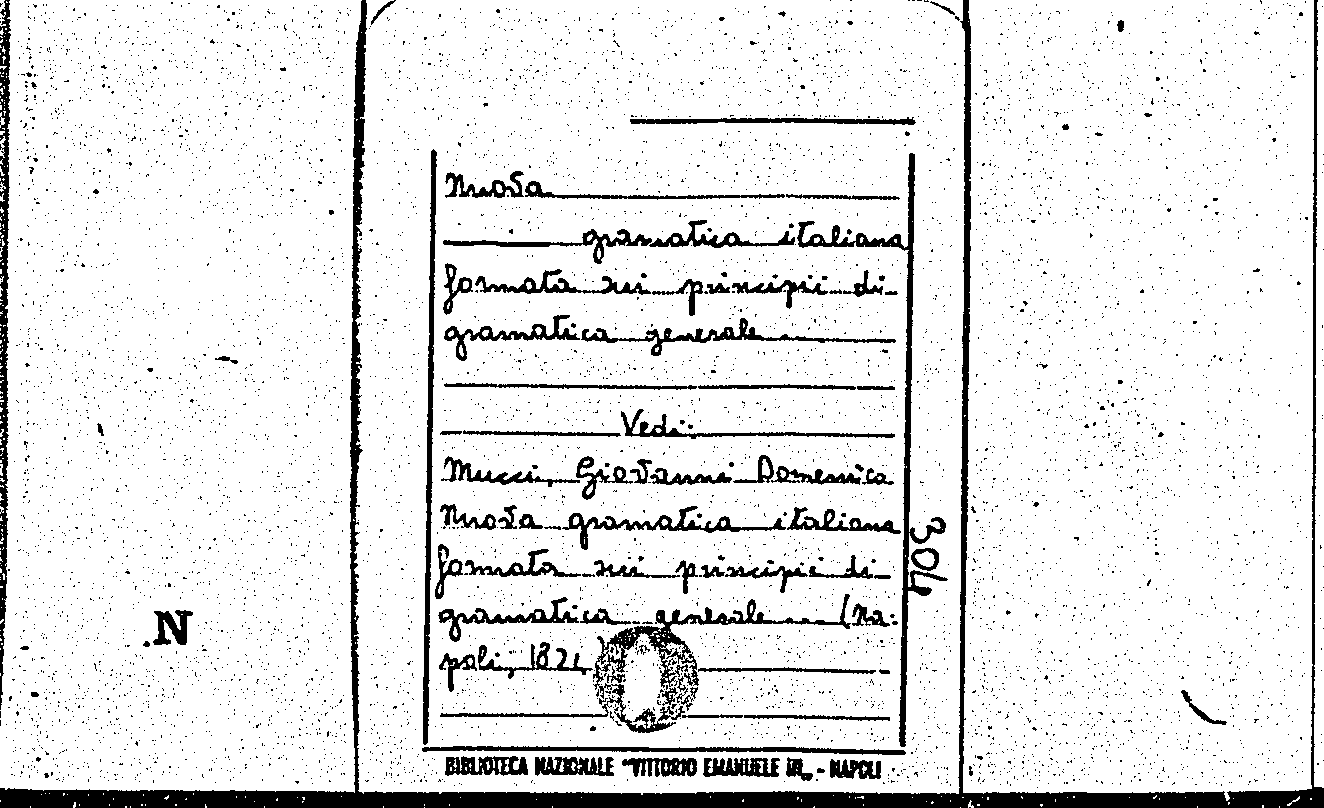 Nuova
gramatica italiana
formata sui principii di
gramatica generale ....
Vedi:
Mucci, Giovanni Domenico
Nuova gramatica italiana
formata sui principii di
gramatica generale .... (Na=
poli, 1821,
304
.N
BIBLIOTECA NAZIONALE "VITTORIO EMANUELE III„ - NAPOLI